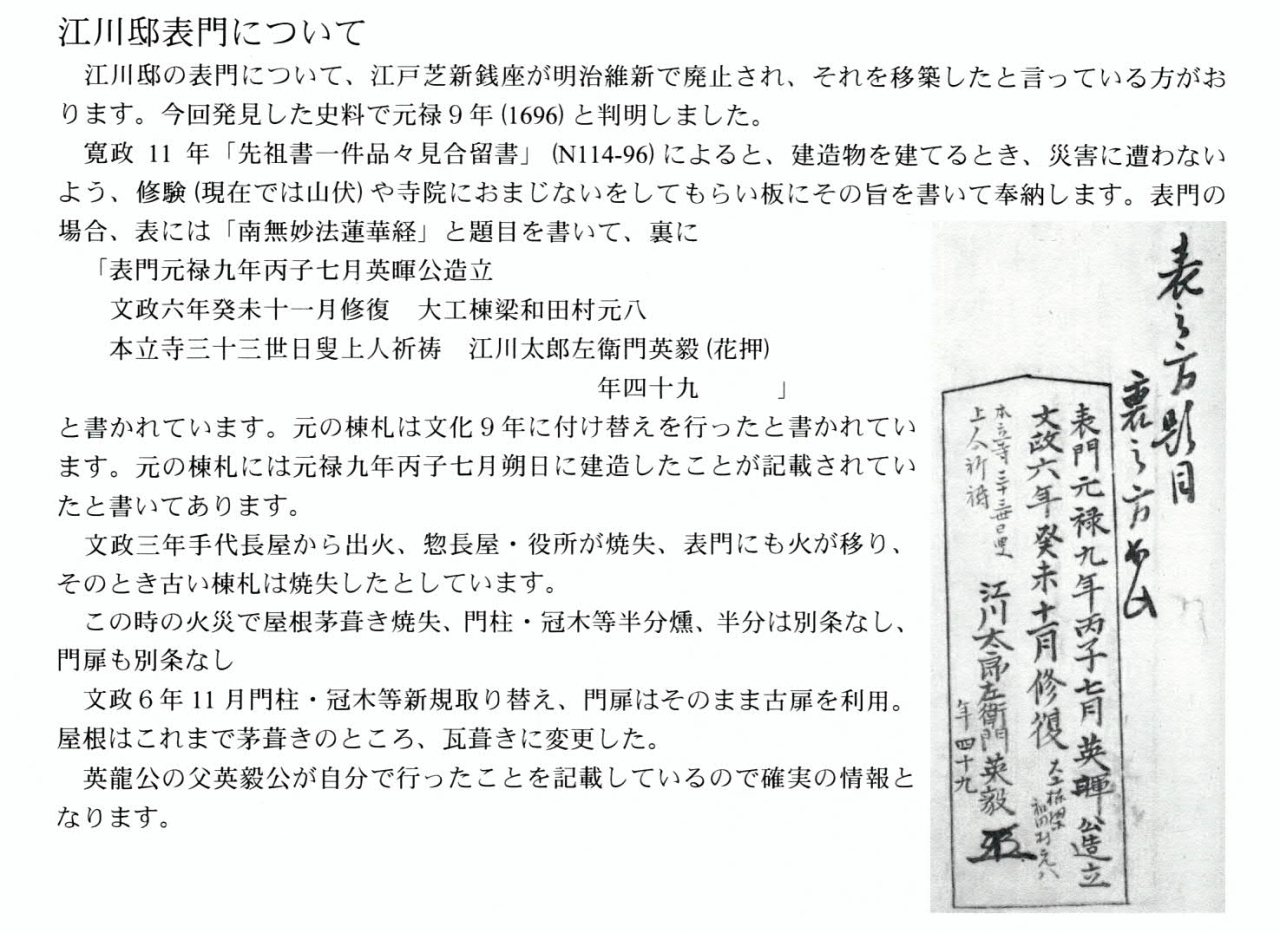 江川邸表門について
江川邸の表門について、江戸芝新銭座が明治維新で廃止され、それを移築したと言っている方がお
ります。今回発見した史料で元禄９年 (1696) と判明しました。
寛政 11 年「先祖書一件品々見合留書」(N114-96) によると、建造物を建てるとき、災害に遭わない
よう、修験 (現在では山伏) や寺院におまじないをしてもらい板にその旨を書いて奉納します。表門の
場合、表には「南無妙法蓮華経」と題目を書いて、裏に
「表門元禄九年丙子七月英暉公造立
文政六年癸未十一月修復　大工棟梁和田村元八
本立寺三十三世日叟上人祈祷　江川太郎左衛門英毅 (花押)
年四十九　　　」
と書かれています。元の棟札は文化９年に付け替えを行ったと書かれてい
ます。元の棟札には元禄九年丙子七月朔日に建造したことが記載されてい
たと書いてあります。
文政三年手代長屋から出火、惣長屋・役所が焼失、表門にも火が移り、
そのとき古い棟札は焼失したとしています。
この時の火災で屋根茅葺き焼失、門柱・冠木等半分燻、半分は別条なし、
門扉も別条なし
文政６年 11 月門柱・冠木等新規取り替え、門扉はそのまま古扉を利用。
屋根はこれまで茅葺きのところ、瓦葺きに変更した。
英龍公の父英毅公が自分で行ったことを記載しているので確実の情報と
なります。
表之方題目
裏之方如此
表門元禄九年丙子七月英暉公造立
文政六年癸未十一月修復
大工棟梁
和田村元八
本立寺三十三世日叟
上人祈祷
江川太郎左衛門英毅
年四十九